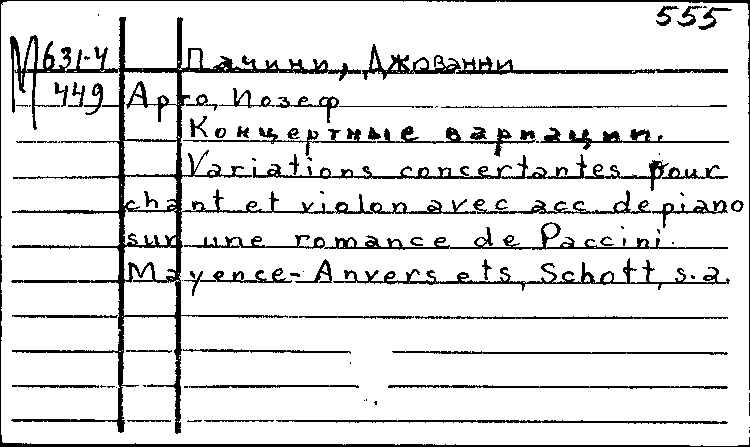 555
М 631-4 Пачини, Джованни
449 Арто, Иозеф
Концертные вариации.
Variations concertantes pour
chant et violon avec acc de piano
sur une romance de Paccini.
Mayence-Anvers ets, Schott, s.a.